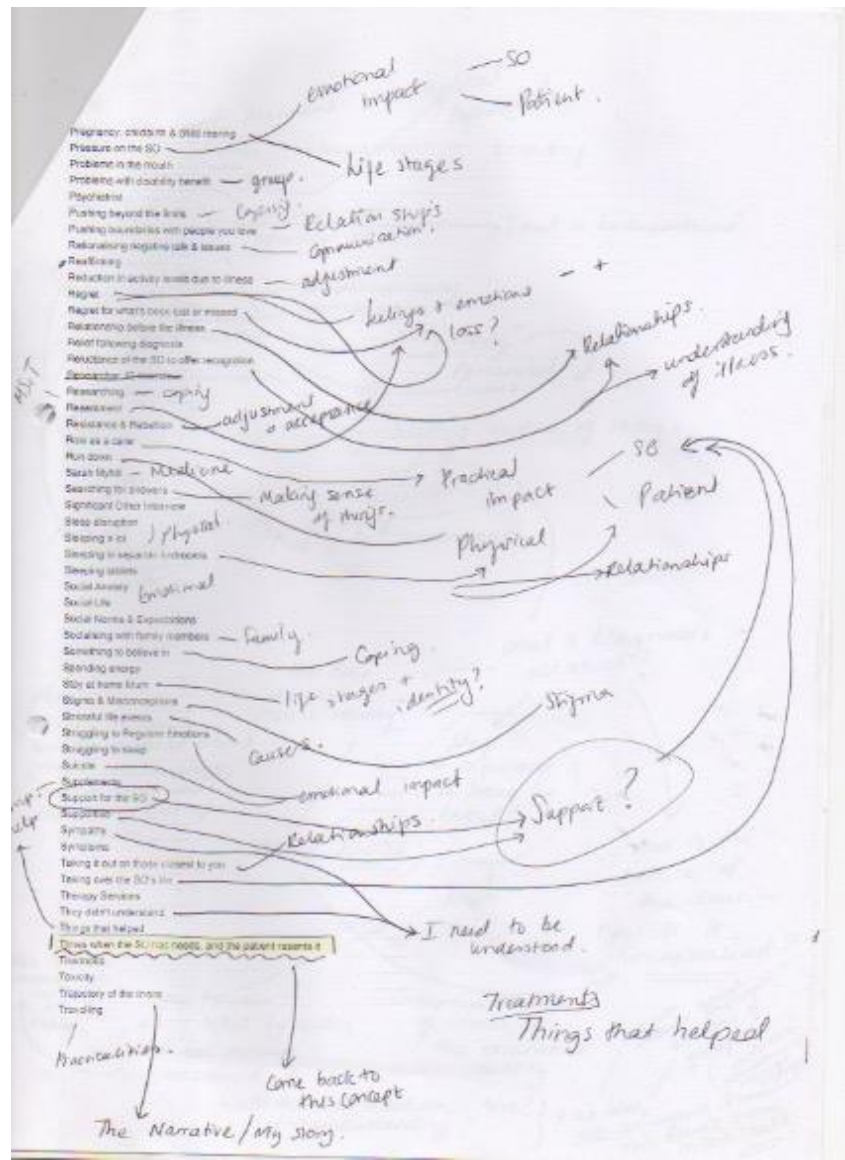 emotional impact — SO
Patient.
Pregnancy, childbirth & child rearing
Pressure on the SO
Life stages
Problems in the mouth
Problems with disability benefit — group.
Psychiatrist
Pushing beyond the limits — Coping.
Pushing boundaries with people you love — Relationships
Rationalising negative talk & issues — Communication.
Reaffirming
Reduction in activity levels due to illness — adjustment
Regret
feelings + emotions - +
Regret for what's been lost or missed
loss?
Relationship before the illness
Relationships.
Relief following diagnosis
Reluctance of the SO to offer recognition
understanding of illness.
Researching — coping
Resentment
Resistance & Rebellion — adjustment & acceptance
Role as a carer
Practical impact
SO
Patient
Run down
Physical
Sarah Myhill — Medicine
Searching for answers — Making sense of things.
Significant Other Interview
Sleep disruption
Sleeping a lot
physical.
Sleeping in separate bedrooms
Relationships
Sleeping tablets
Social Anxiety
Emotional
Social Life
Social Norms & Expectations
Socialising with family members — family.
Something to believe in — Coping.
Spending energy
Stay at home Mum — life stages + identity?
Stigma & Misconceptions
Stigma
Stressful life events
Causes.
Struggling to Regulate Emotions
Struggling to sleep
Suicide
emotional impact
Supplements
Support for the SO
Support?
Supportive
Sympathy
Symptoms
Relationships.
Taking it out on those closest to you
Taking over the SO's life
Therapy Services
They didn't understand
I need to be understood.
Things that helped
help
Times when the SO has needs, and the patient resents it
Come back to this concept
Toxicity
Trajectory of the illness
The Narrative / My story.
Travelling
Practicalities.
Treatments
Things that helped